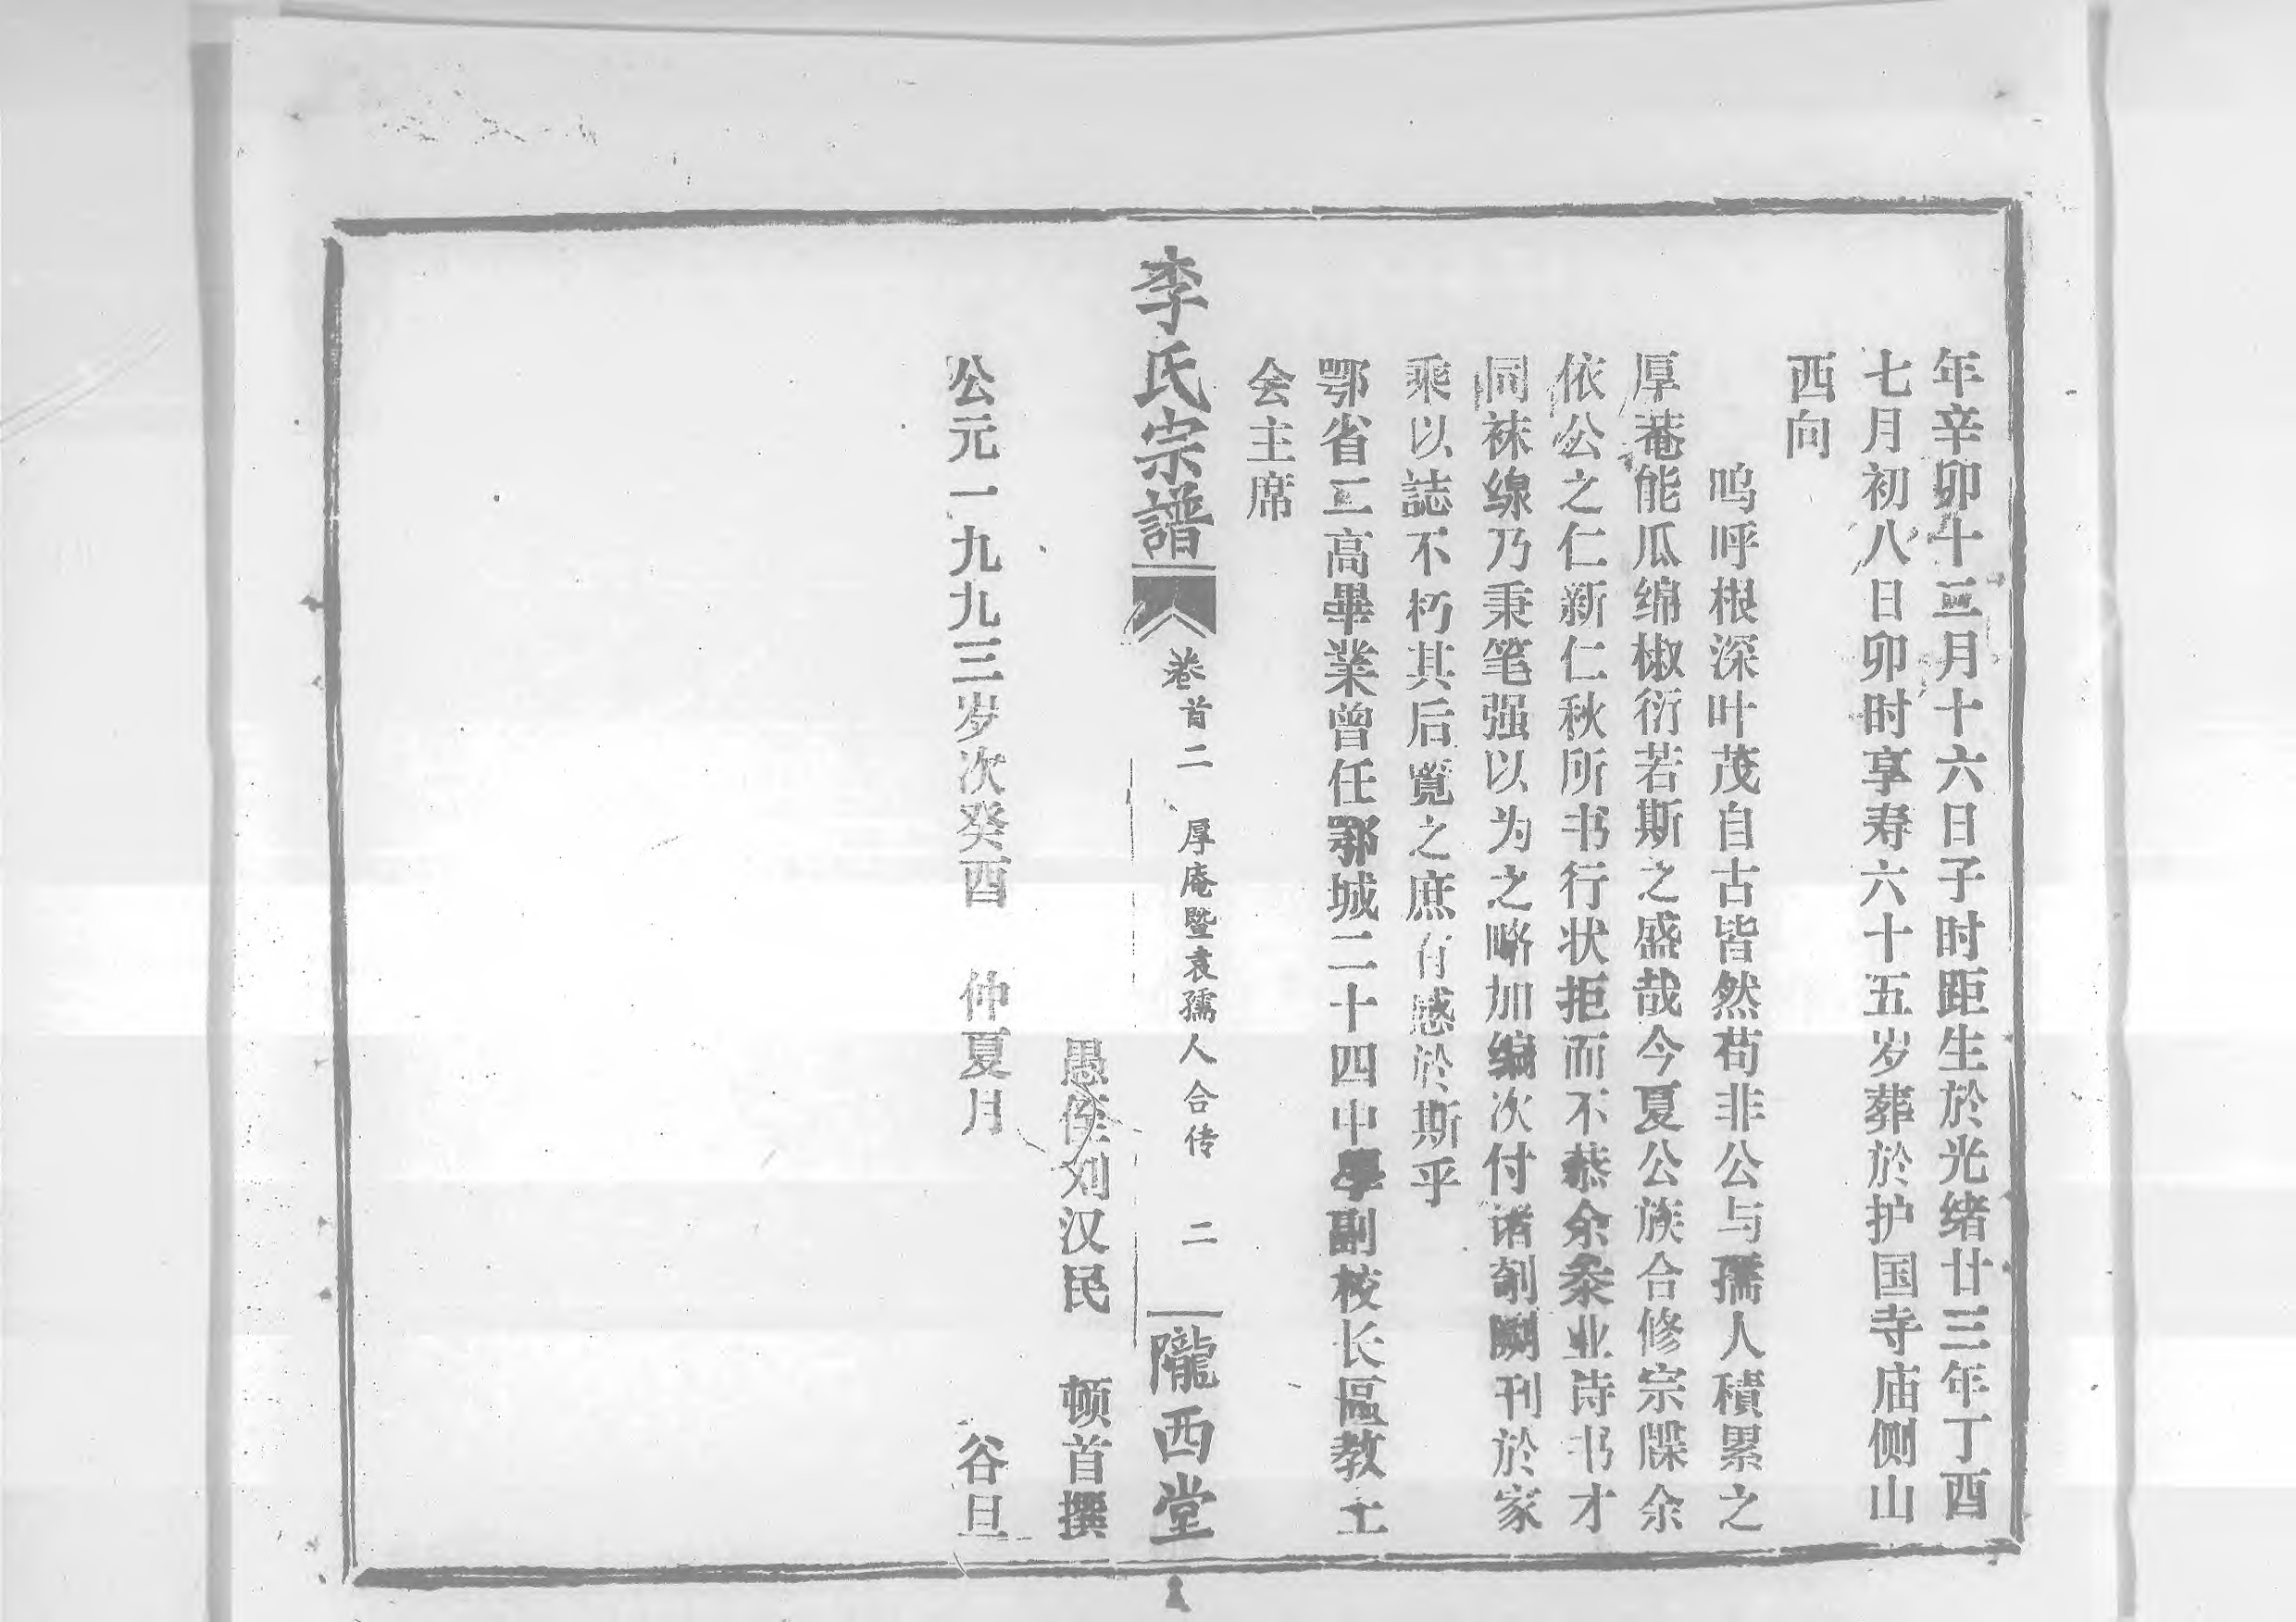 年辛卯十二月十六日子时距生於光绪廿三年丁酉
七月初八日卯时享寿六十五岁葬於护国寺庙侧山
西向
呜呼根深叶茂自古皆然苟非公与孺人積累之
厚菴能瓜绵椒衍若斯之盛哉今夏公族合修宗牒余
依公之仁新仁秋所书行状拒而不恭余忝业诗书才
同袜线乃秉笔强以为之略加编次付诸剞劂刊於家
乘以誌不朽其后覽之庶有感於斯乎
鄂省二高畢業曾任鄂城二十四中學副校长區教工
会主席
李氏宗譜 卷首二 厚庵暨袁孺人合传 二 隴西堂
愚侄刘汉民 顿首撰
公元一九九三岁次癸酉 仲夏月 谷旦